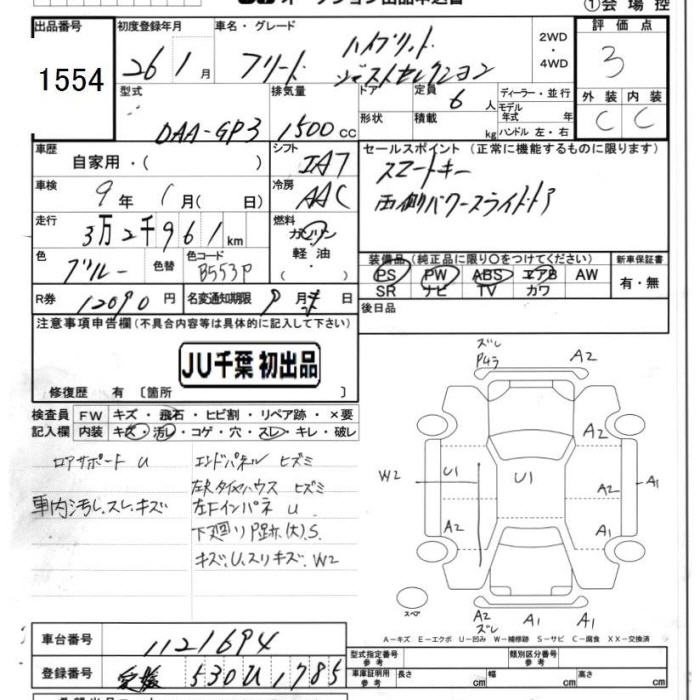 ①会場控
出品番号
1554
初度登録年月
26 年 1 月
車名・グレード
フリード
ハイブリッド
ジャストセレクション
2WD
・
4WD
評価点
3
型式
DAA-GP3
排気量
1500 cc
ドア
形状
定員 6 人
積載 kg
ディーラー・並行
モデル年式 年
ハンドル 左・右
外装 内装
C C
車歴 自家用・( )
シフト IA7
車検 9年 1月( 日)
冷房 AAC
走行 3万2千961 km
燃料 ガソリン
軽油
( )
色 ブルー
色替
色コード B553P
R券 12090 円
名変通知期限 月 日
セールスポイント (正常に機能するものに限ります)
スマートキー
両側パワースライドドア
装備品 (純正品に限り○をつけてください)
PS PW ABS エアB AW
SR ナビ TV カワ
新車保証書
有・無
後日品
注意事項申告欄(不具合内容等は具体的に記入して下さい)
JU千葉 初出品
修復歴 有 〔箇所 〕
検査員 FW キズ・飛石・ヒビ割・リペア跡・×要
記入欄 内装 キズ・汚し・コゲ・穴・スレ・キレ・破し
ロアサポート U
車内汚し、スレ、キズ
エンドパネル ヒズミ
左Rタイヤハウス ヒズミ
左Fインパネ U
下廻りP跡(大)、S
キズ、U、スリキズ、W2
ズレ
A2
A2
W2 U1 U1 A1
A2
A2 A1
スペア
A2
ズレ
A1 A1
A-キズ E-エクボ U-凹み W-補修跡 S-サビ C-腐食 XX-交換済
車台番号 1121694
登録番号 愛媛 530 U 1785
型式指定番号
参考
類別区分番号
参考
車庫証明用
参考
長さ cm 幅 cm 高さ cm